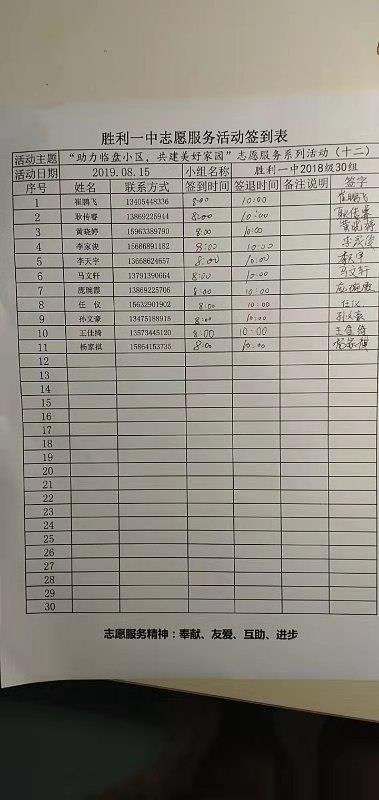 胜利一中志愿服务活动签到表
活动主题 “助力临盘小区，共建美好家园”志愿服务系列活动（十二）
活动日期 2019.08.15 小组名称 胜利一中2018级30组
序号 姓名 联系方式 签到时间 签退时间 备注说明 签字
1 崔鹏飞 13405448336 8:00 10:00 崔鹏飞
2 耿传睿 13869225944 8:00 10:00 耿传睿
3 黄晓婷 15963389790 8:00 10:00 黄晓婷
4 李家俊 15666891182 8:00 10:00 李家俊
5 李天宇 13668624657 8:00 10:00 李天宇
6 马文轩 13791390664 8:00 10:00 马文轩
7 庞婉霞 13869225706 8:00 10:00
8 任仪 15632901902 8:00 10:00 任仪
9 孙文豪 13475188915 8:00 10:00 孙文豪
10 王佳绮 13573445120 8:00 10:00 王佳绮
11 杨家祺 15864153735 8:00 10:00 杨家祺
12
13
14
15
16
17
18
19
20
21
22
23
24
25
26
27
28
29
30
志愿服务精神：奉献、友爱、互助、进步